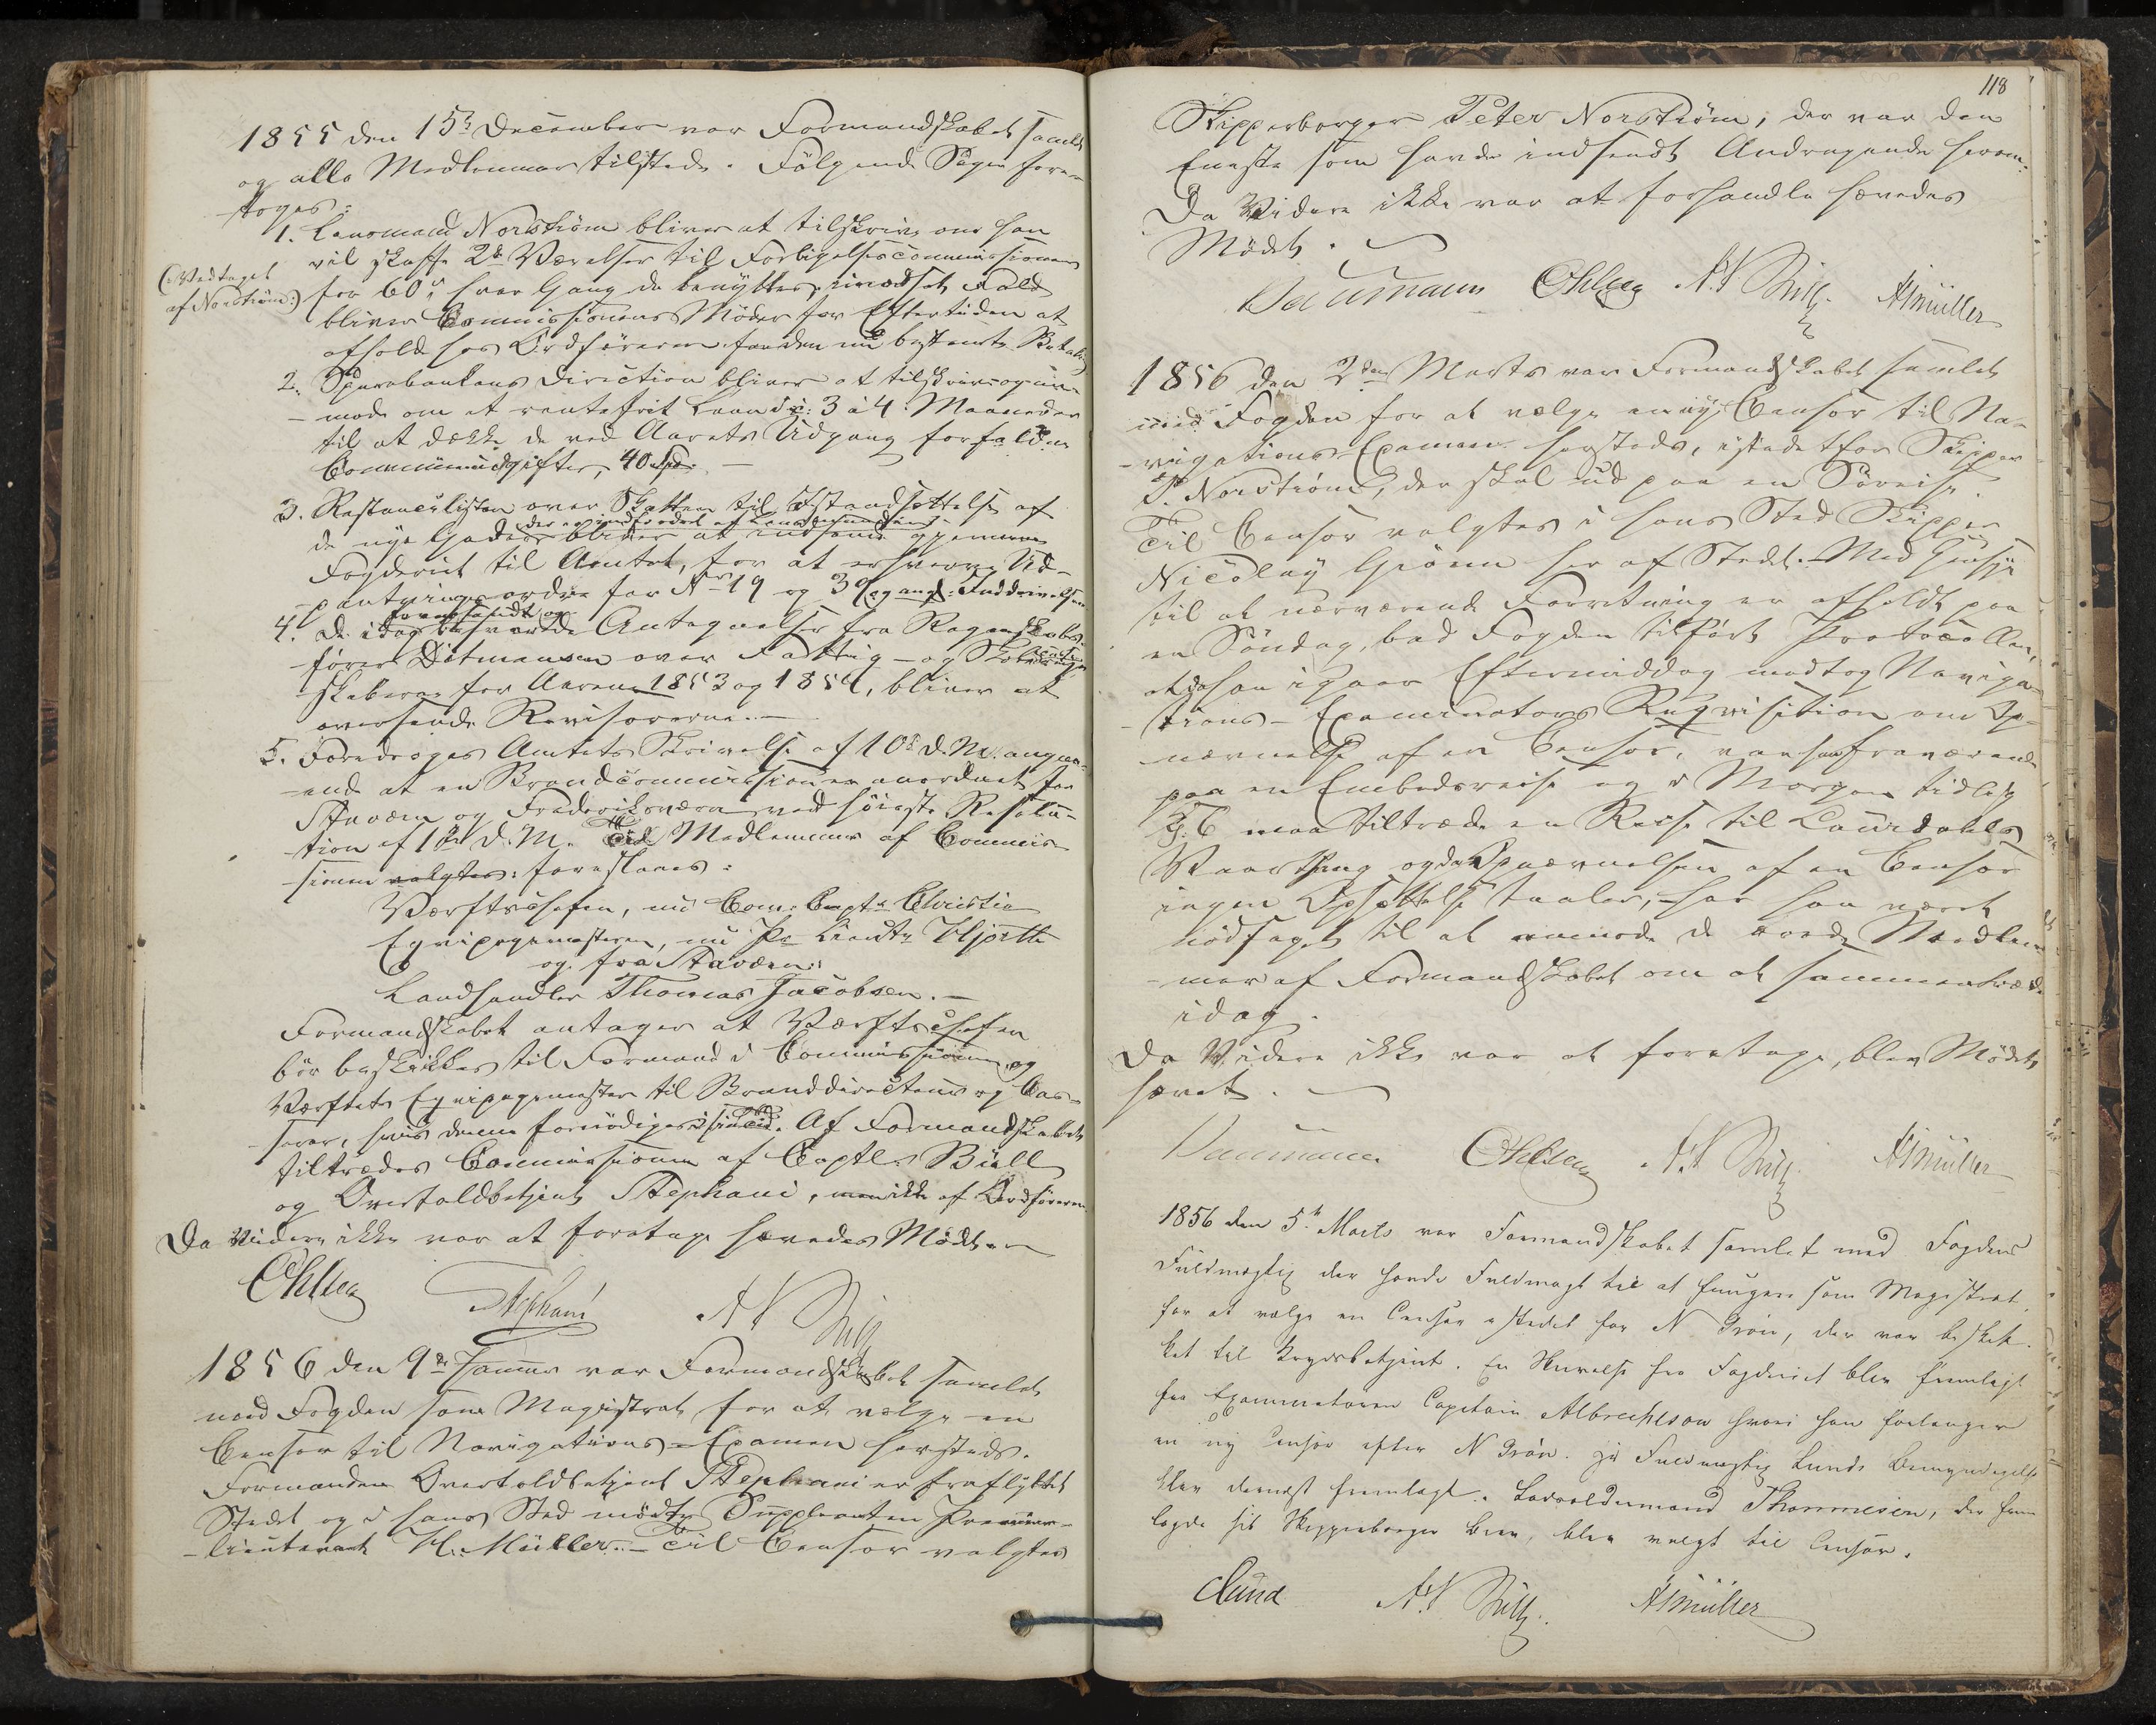 1855 den 15de December var Formandskabet samlet
og alle Medlemmer tilstede. Følgende Sager fore-
toges:
1. Lensmand Norstrøm bliver at tilskrive om han
vil skaffe 2de Værelser til Forligelsescommissionen
(Vedtaget
af Norstrøm:)
for 60 s hver Gang de benyttes; i modsat Fald
bliver Commissionens Møder for Eftertiden at
afholde hos Ordføreren for den nu bestemte Betaling
2. Sparebankens Direction bliver at tilskrive og an-
mode om et rentefrit Laan i 3 à 4 Maaneder
til at dække de ved Aarets Udgang forfaldne
Communeudgifter, 40 Spd. —
3. Restancelisten over Skatten til Istandsættelse af
der er indfordret af Lensmanden
de nye Gader bliver at indsende gjennem
Fogderiet til Amtet, for at erhverve Ud-
pantningsordre for No 19 og 39 angd. Inddrivelsen
foresendt og
4. De idag besvarede Antegnelser fra Regnskabs-
fører Ditmansen over Fattig- og Skoleregn-
skaberne for Aarene 1853 og 1854, bliver at
oversende Revisorerne. —
5. Foredroges Amtets Skrivelse af 10de d. M. angaa-
ende at en Brandcommission er anordnet for
Stavern og Frederiksværn ved høieste Resolu-
tion af 1ste d. M. Til Medlemmer af Commis-
sionen valgtes: foreslaaes:
Værftschefen, nu Com. Capt. Christie
Eqvipagemesteren, nu Pr. Lieutn. Hjorth
og fra Stavern:
Landhandler Thomas Jacobsen. —
Formandskabet antager at Værftschefen
bør beskikkes til Formand i Commissionen og
Værftets Eqvipagemester til Branddirecteur og Cas-
serer, hvis denne fornødiges i sin Tid. Af Formandskabet
tiltrædes Commissionen af Captl. Büll
og Overtoldbetjent Stephani, men ikke af Ordføreren
Da Videre ikke var at foretage hævedes Mødet. —
Ohlsen Stephani A N Büll
1856 den 9de Januar var Formandskabet samlet
med Fogden som Magistrat for at vælge en
Censor til Navigations-Examen hersteds.
Formanden Overtoldbetjent Stephani er fraflyttet
Stedet og i hans Sted mødte Suppleanten Premier-
lieutenant H. Müller. — Til Censor valgtes
118
Skipperborger Peter Norstrøm, der var den
Eneste som havde indsendt Andragende herom.
Da Videre ikke var at forhandle hævedes
Mødet.
Baumann Ohlsen A. N Büll. H Müller
1856 den 2den Marts var Formandskabet samlet
med Fogden for at vælge en ny Censor til Na-
vigations-Examen hersteds, istedetfor Skipper
P. Norstrøm, der skal ud paa en Søreise.
Til Censor valgtes i hans Sted Skipper
Nicolay Grønn her af Stedet. Med Hensyn
til at nærværende Forretning er afholdt paa
en Søndag, bad Fogden tilført Protocollen,
at da han igaar Eftermiddag modtog Naviga-
tions-Examinators Reqvisition om Op-
nævnelse af en Censor, var han fraværende
paa en Embedsreise og i Morgen tidlig
Kl. 6 maa tiltræde en Reise til Laurdahls
Vaarthing og da Opnævnelsen af en Censor
ingen Opsættelse taaler, har han været
nødsaget til at anmode de ærede Medlem-
mer af Formandskabet om at sammentræde
idag.
Da Videre ikke var at foretage, blev Mødet
hævet.
Baumann Ohlsen A. N Büll. H Müller
1856 den 5te Marts var Formandskabet samlet med Fogdens
Fuldmægtig der havde Fuldmagt til at fungere som Magistrat
for at vælge en Censor istedet for N Grøn, der var beskik-
ket til Krydsbetjent. En Skrivelse fra Fogderiet blev fremlagt
fra Examinatoren Capitain Albrechtson hvori han forlanger
en ny Censor efter N Grøn. Fuldmægtig Lunds Bemyndigelse
blev dernæst fremlagt. Lodsoldermand Thommesen, der frem-
lagde sit Skipperborger Brev, blev valgt til Censor.
Lund A. N Büll. H Müller